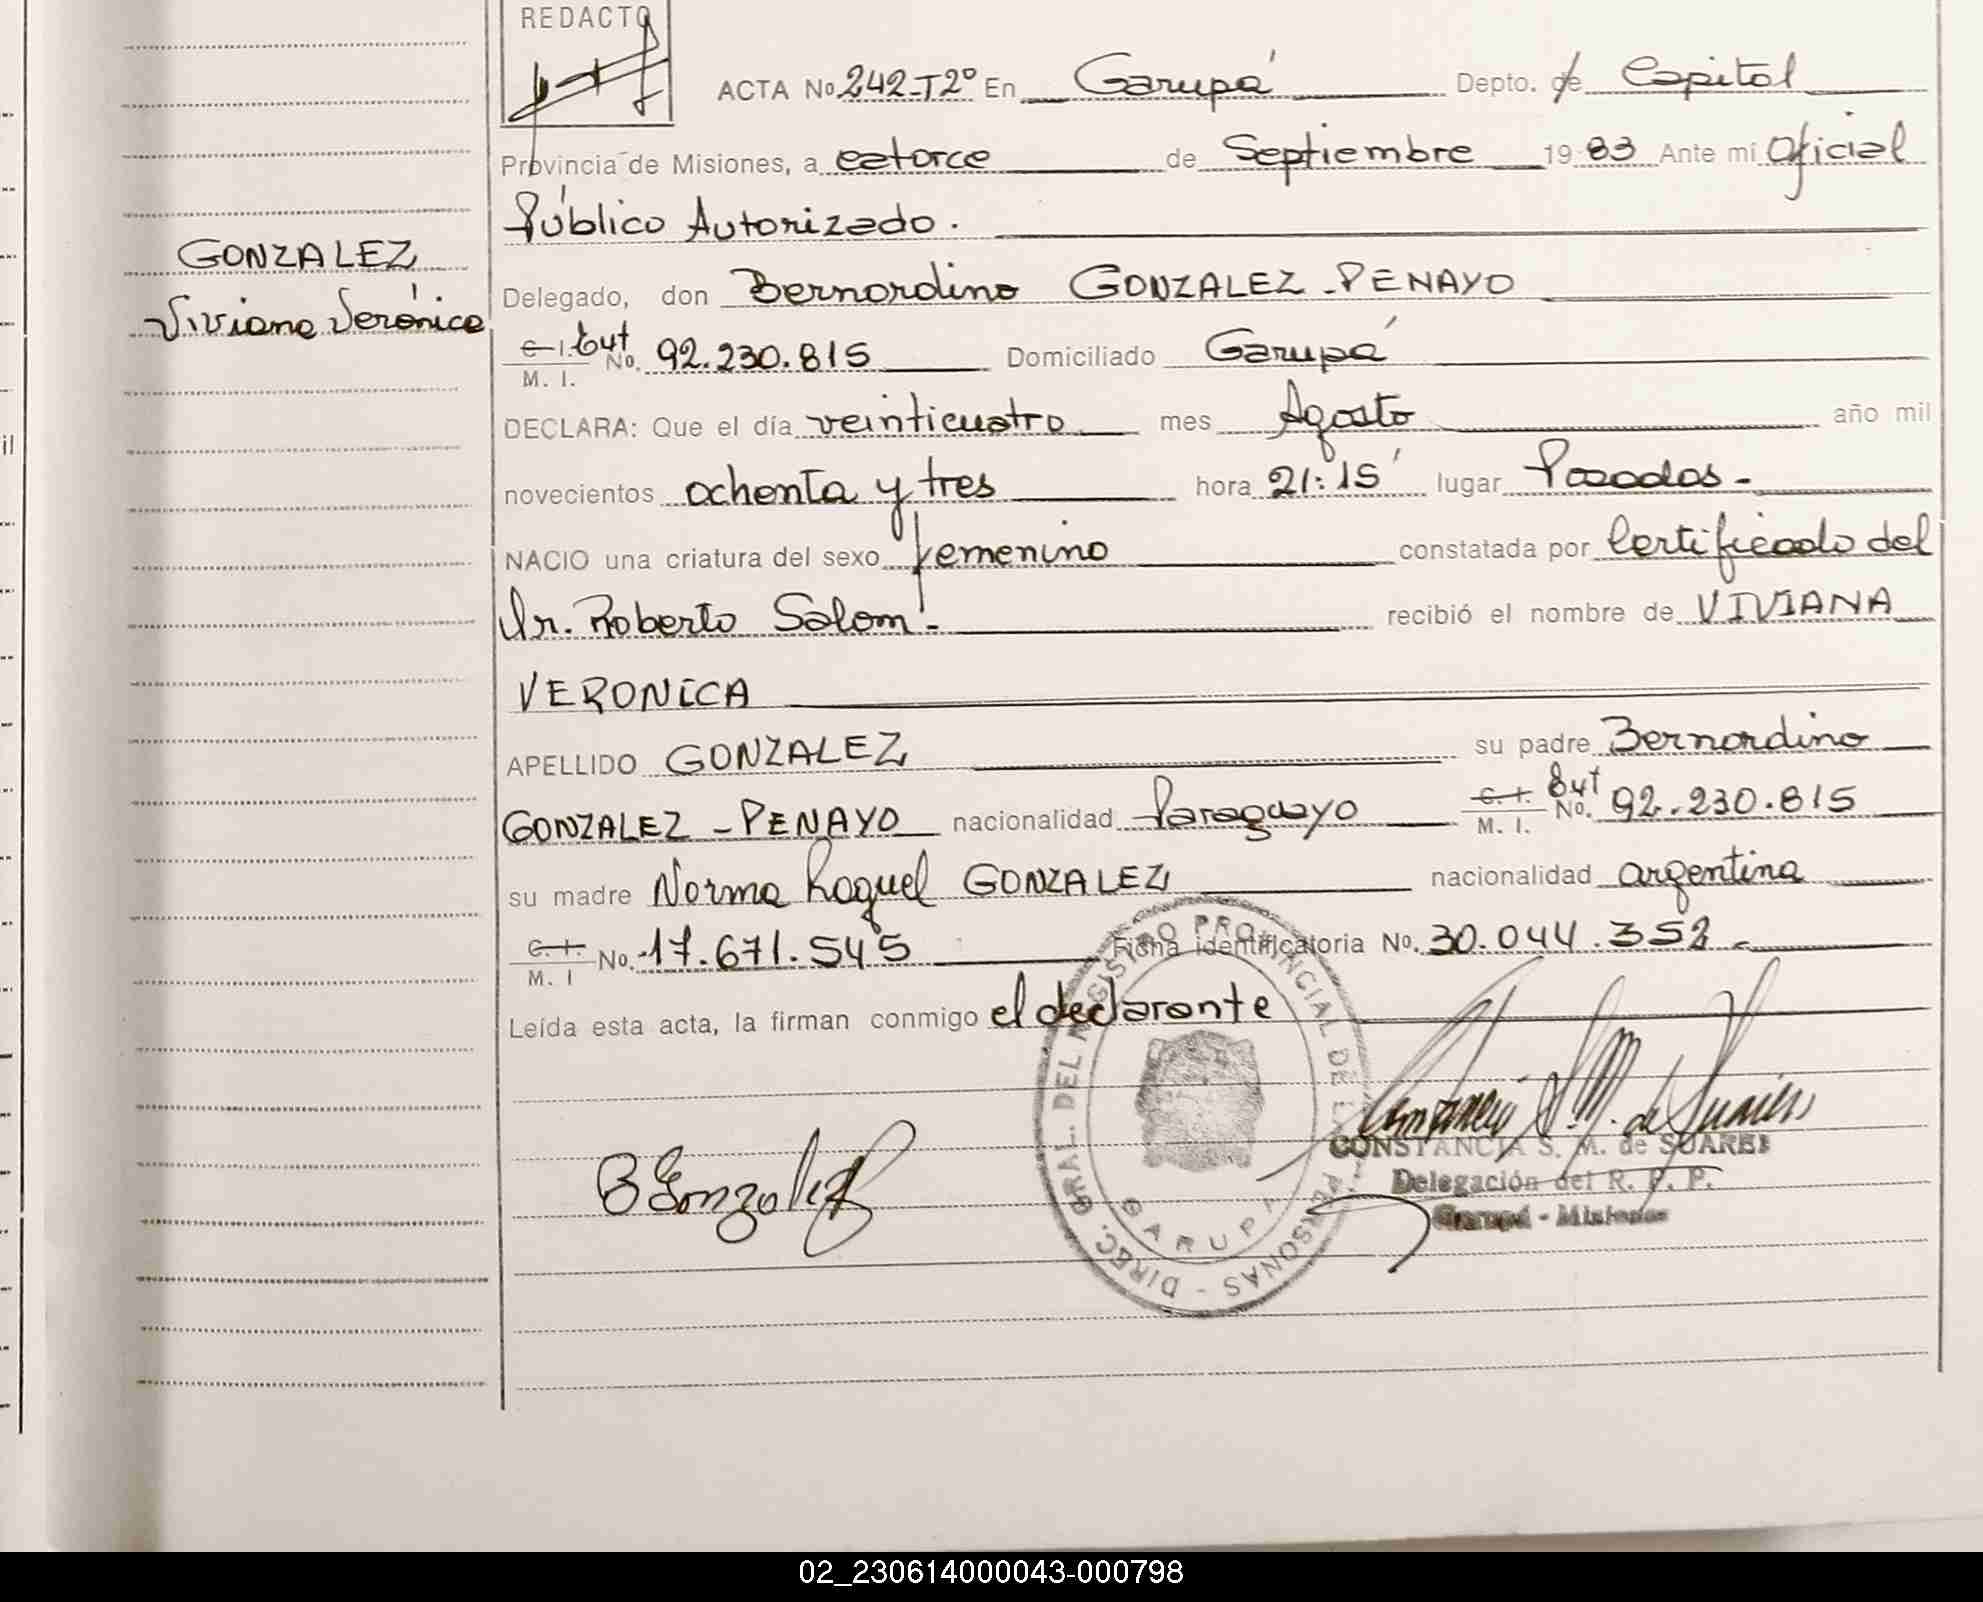 REDACTO
ACTA No 242-T2º En Garupá Depto. de Capital
Provincia de Misiones, a catorce de Septiembre 1983 Ante mí Oficial
Público Autorizado.
GONZALEZ
Viviana Verónica
Delegado, don Bernardino GONZALEZ-PENAYO
C.I. M. I. No. 92.230.815 Domiciliado Garupá
DECLARA: Que el día veinticuatro mes Agosto año mil
novecientos ochenta y tres hora 21:15' lugar Posadas.-
NACIO una criatura del sexo femenino constatada por Certificado del
Dr. Roberto Salom.- recibió el nombre de VIVIANA
VERONICA
APELLIDO GONZALEZ su padre Bernardino
GONZALEZ-PENAYO nacionalidad Paraguayo C. I. M. I. No. 92.230.815
su madre Norma Raquel GONZALEZ nacionalidad argentina
C. I. M. I No. 17.671.545 Ficha identificatoria No. 30.044.352.-
Leída esta acta, la firman conmigo el declarante
DIREC. GRAL. DEL REGISTRO PROVINCIAL DE LAS PERSONAS -
GARUPA
B Gonzalez
CONSTANCIA S. M. de SUAREZ
Delegación del R. P. P.
Garupá - Misiones
02_230614000043-000798